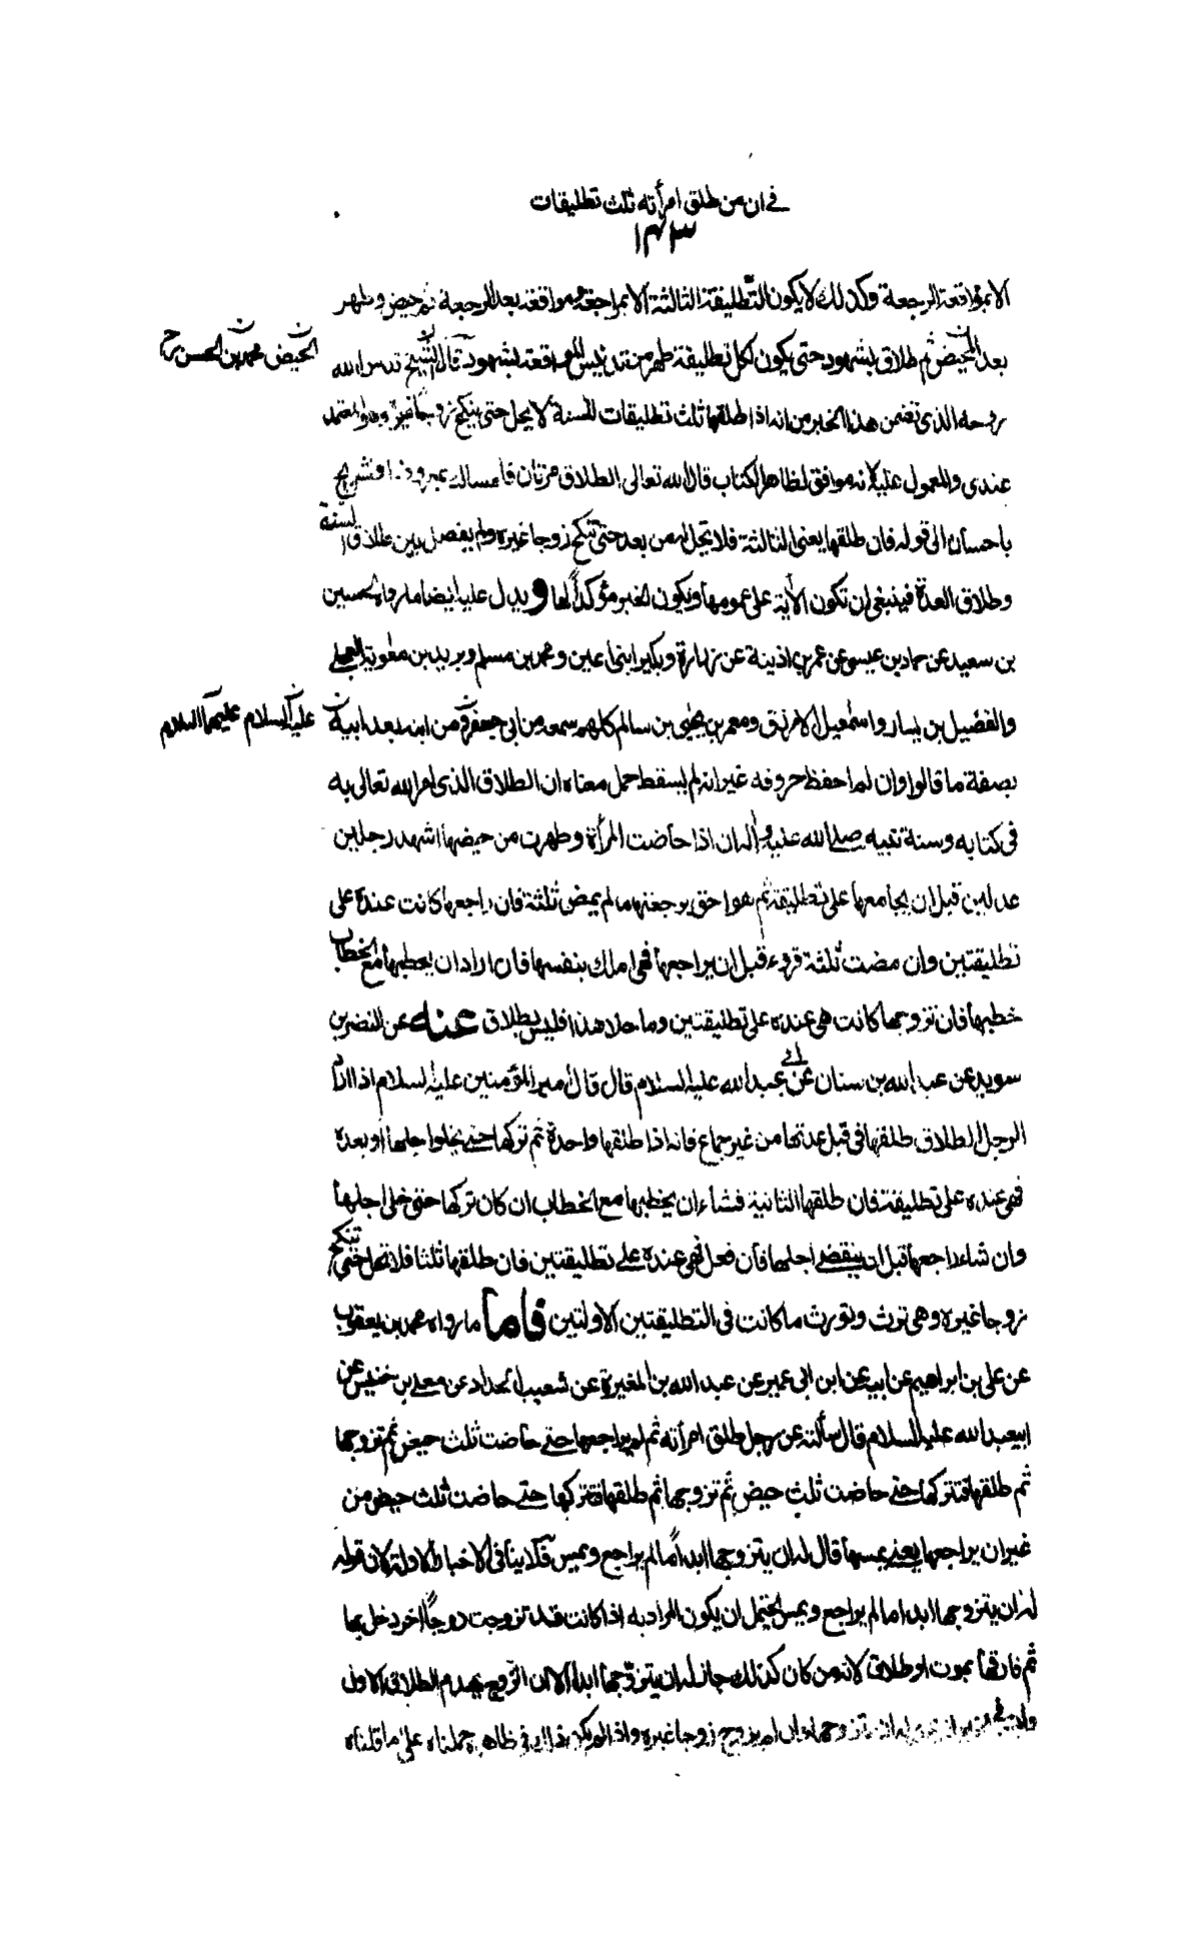 في ان من طلق امرأته ثلث تطليقات
١٤٣
الا بمواقعة الرجعة وكذلك لا يكون التطليقة الثالثة الا بمراجعة ومواقعة بعد الرجعة ثم حيض وطهر
بعد الحيض ثم طلاق بشهود حتى يكون لكل تطليقة طهر من تدنيس المواقعة بشهود قال الشيخ قدس الله
الحيض محمد بن الحسن رح
روحه الذي تضمن هذا الخبر من انه اذا طلقها ثلث تطليقات للسنة لا يحل حتى ينكح زوجا غيره وهو المعتمد
عندي والمعمول عليه لانه موافق لظاهر الكتاب قال الله تعالى الطلاق مرتان فامساك بمعروف او تسريح
باحسان الى قوله فان طلقها يعني الثالثة فلا تحل له من بعد حتى تنكح زوجا غيره ولم يفصل بين طلاق السنة
وطلاق العدة فينبغي ان تكون الآية على عمومها ويكون الخبر مؤكدا لها ويدل عليه ايضا ما رواه الحسين
بن سعيد عن حماد بن عيسى عن عمر بن اذينة عن زرارة وبكير ابني اعين ومحمد بن مسلم وبريد بن معوية العجلي
والفضيل بن يسار واسمعيل الازرق ومعمر بن يحيى بن سالم كلهم سمعه من ابي جعفر ومن ابنه بعد ابيه
عليه السلام عليهما السلام
بصفة ما قالوا وان لم احفظ حروفه غير انه لم يسقط حمل معناه ان الطلاق الذي امر الله تعالى به
في كتابه وسنة نبيه صلى الله عليه وآله ان اذا حاضت المرأة وطهرت من حيضها اشهد رجلين
عدلين قبل ان يجامعها على تطليقة ثم هو احق برجعتها ما لم يمض ثلثة فان راجعها كانت عنده على
تطليقتين وان مضت ثلثة قروء قبل ان يراجعها فهي املك بنفسها فان اراد ان يخطبها مع الخطاب
خطبها فان تزوجها كانت هي عنده على تطليقتين وما خلا هذا فليس بطلاق عنه عن النضر بن
سويد عن عبد الله بن سنان عن ابي عبد الله عليه السلام قال قال امير المؤمنين عليه السلام اذا اراد
الرجل الطلاق طلقها في قبل عدتها من غير جماع فانه اذا طلقها واحدة ثم تركها حتى يخلو اجلها او بعده
فهي عنده على تطليقة فان طلقها الثانية فشاء ان يخطبها مع الخطاب ان كان تركها حتى خلى اجلها
وان شاء راجعها قبل ان ينقضي اجلها فان فعل فهي عنده على تطليقتين فان طلقها ثلثا فلا تحل حتى تنكح
زوجا غيره وهي ترث وتورث ما كانت في التطليقتين الاولتين فاما ما رواه محمد بن يعقوب
عن علي بن ابراهيم عن ابيه عن ابن ابي عمير عن عبد الله بن المغيرة عن شعيب الحداد عن معلى بن خنيس عن
ابيعبد الله عليه السلام قال سألته عن رجل طلق امرأته ثم لم يراجعها حتى حاضت ثلث حيض ثم تزوجها
ثم طلقها فتركها حتى حاضت ثلث حيض ثم تزوجها ثم طلقها فتركها حتى حاضت ثلث حيض من
غير ان يراجعها يعني يمسها قال له ان يتزوجها ابدا ما لم يراجع ويمس فلا ينافي الاخبار الاولة لان قوله
له ان يتزوجها ابدا ما لم يراجع ويمس يحتمل ان يكون المراد به اذا كانت قد تزوجت زوجا اخر دخل بها
ثم فارقها بموت او طلاق لانه من كان كذلك جاز له ان يتزوجها ابدا لان الزوج يهدم الطلاق الاول
وليس في الخبر انه يجوز له ان يتزوجها وان لم يزوج زوجا غيره واذا لم يكن ذلك في ظاهره حملناه على ما قلناه